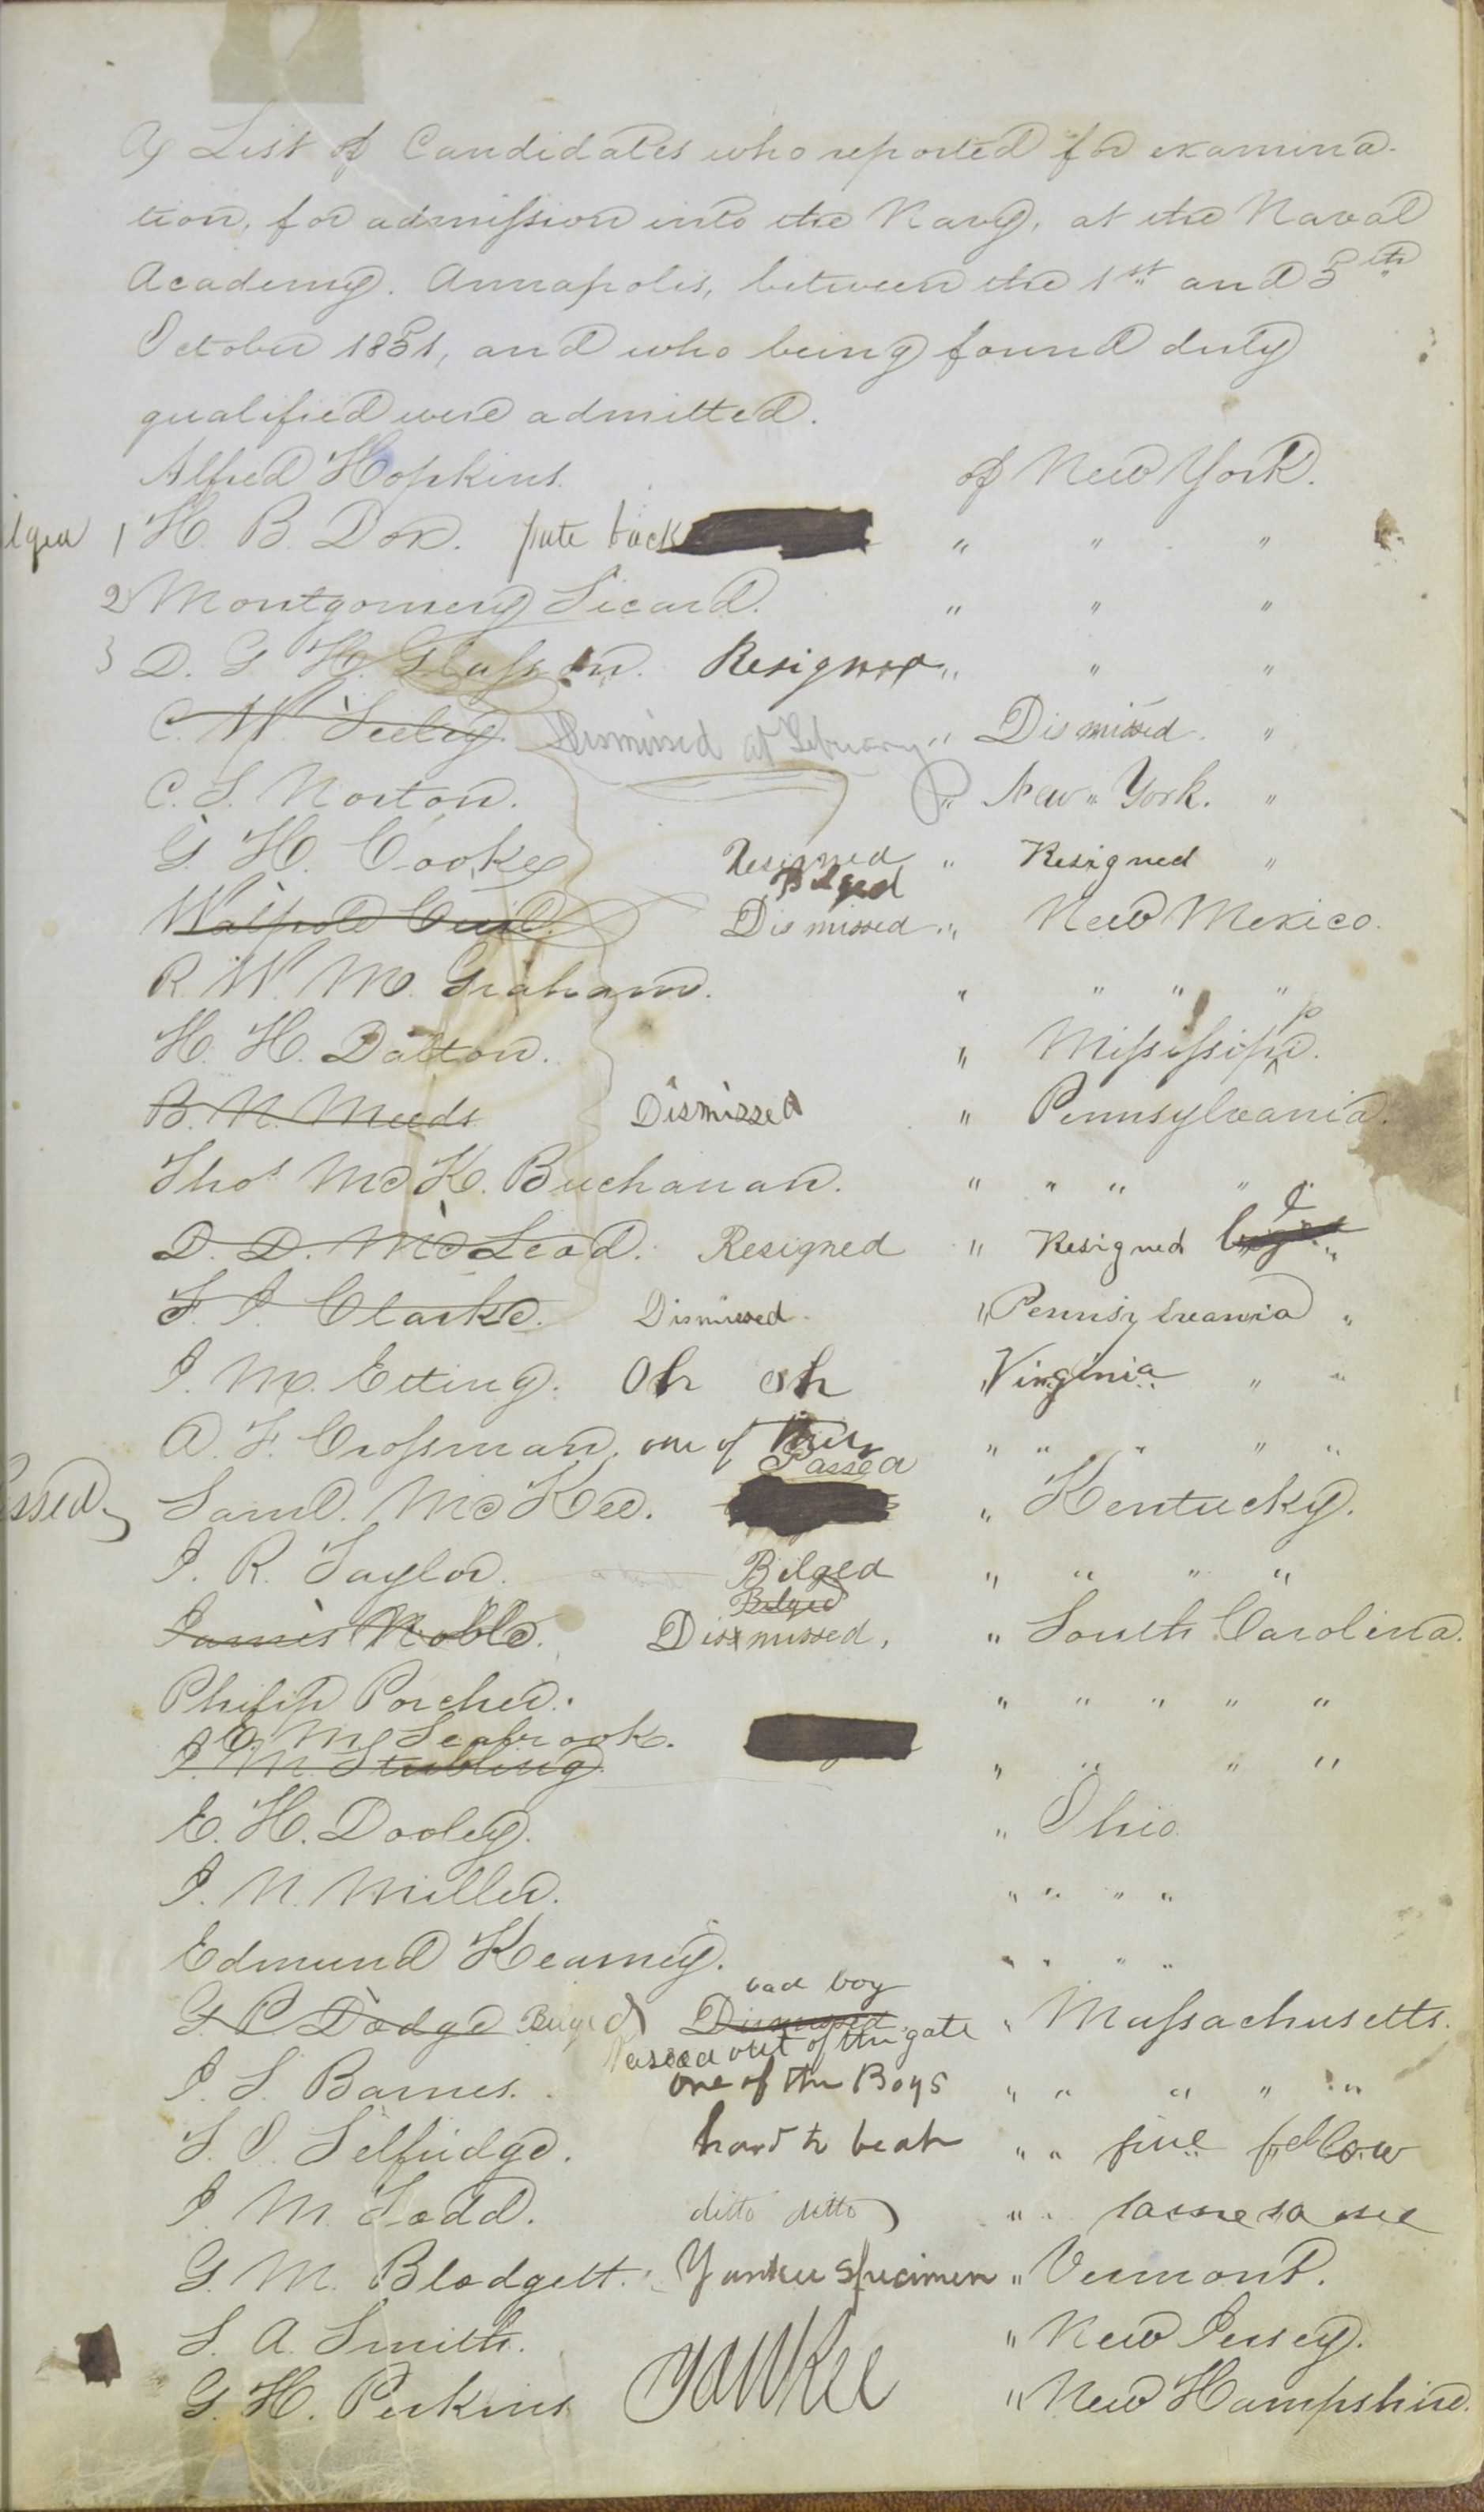 A List of Candidates who reported for examina-
tion, for admission into the Navy, at the Naval
Academy. Annapolis, between the 1st and 5th
October 1851, and who being found duly
qualified were admitted.
Alfred Hopkins. of New York.
1 H. B. Dox. pute back " " "
2 Montgomery Sicard. " " "
3 D. G. H. Resigned " " "
C. W. Seeley. Dismissed at Febuary " Dismissed. "
C. S. Norton. " New " York. "
G. H. Cooke Resigned " Resigned "
Bilged
Walpole Dismissed " New Mexico.
R. W. M. Graham. " " " "
H. H. Dalton. " Missisippi.
B. N. Meeds Dismissed " Pennsylvania.
Thos McK. Buchanan. " " " " "
D. D. McLeod. Resigned " Resigned "
F. J. Clarke. Dismissed " Pennsylvania "
J. M. Etting. Oh oh " Virginia " "
A. F. Crossman. one of " " " " "
Passed
Saml. McKee. " Kentucky.
J. R. Taylor. Bilged " " " "
Bilged
James Noble. Dismissed, " South Carolina.
Philip Porcher. " " " " "
E. M. Seabrook.
J. M. Stribling. " " " "
E. H. Dooley. " Ohio.
J. N. Miller. " " " "
Edmund Kearney. " " " "
bad boy
G. P. Dodge Bilged Dismissed " Massachusetts.
Passed out of the gate
J. S. Barnes. one of the Boys " " " " "
T. O. Selfridge. hard to beat " " fine fellow
J. M. Todd. ditto ditto " "
G. M. Blodgett. Yankee Specimen " Vermont.
S. A. Smith. " New Jersey.
G. H. Perkins Yankee " New Hampshire.